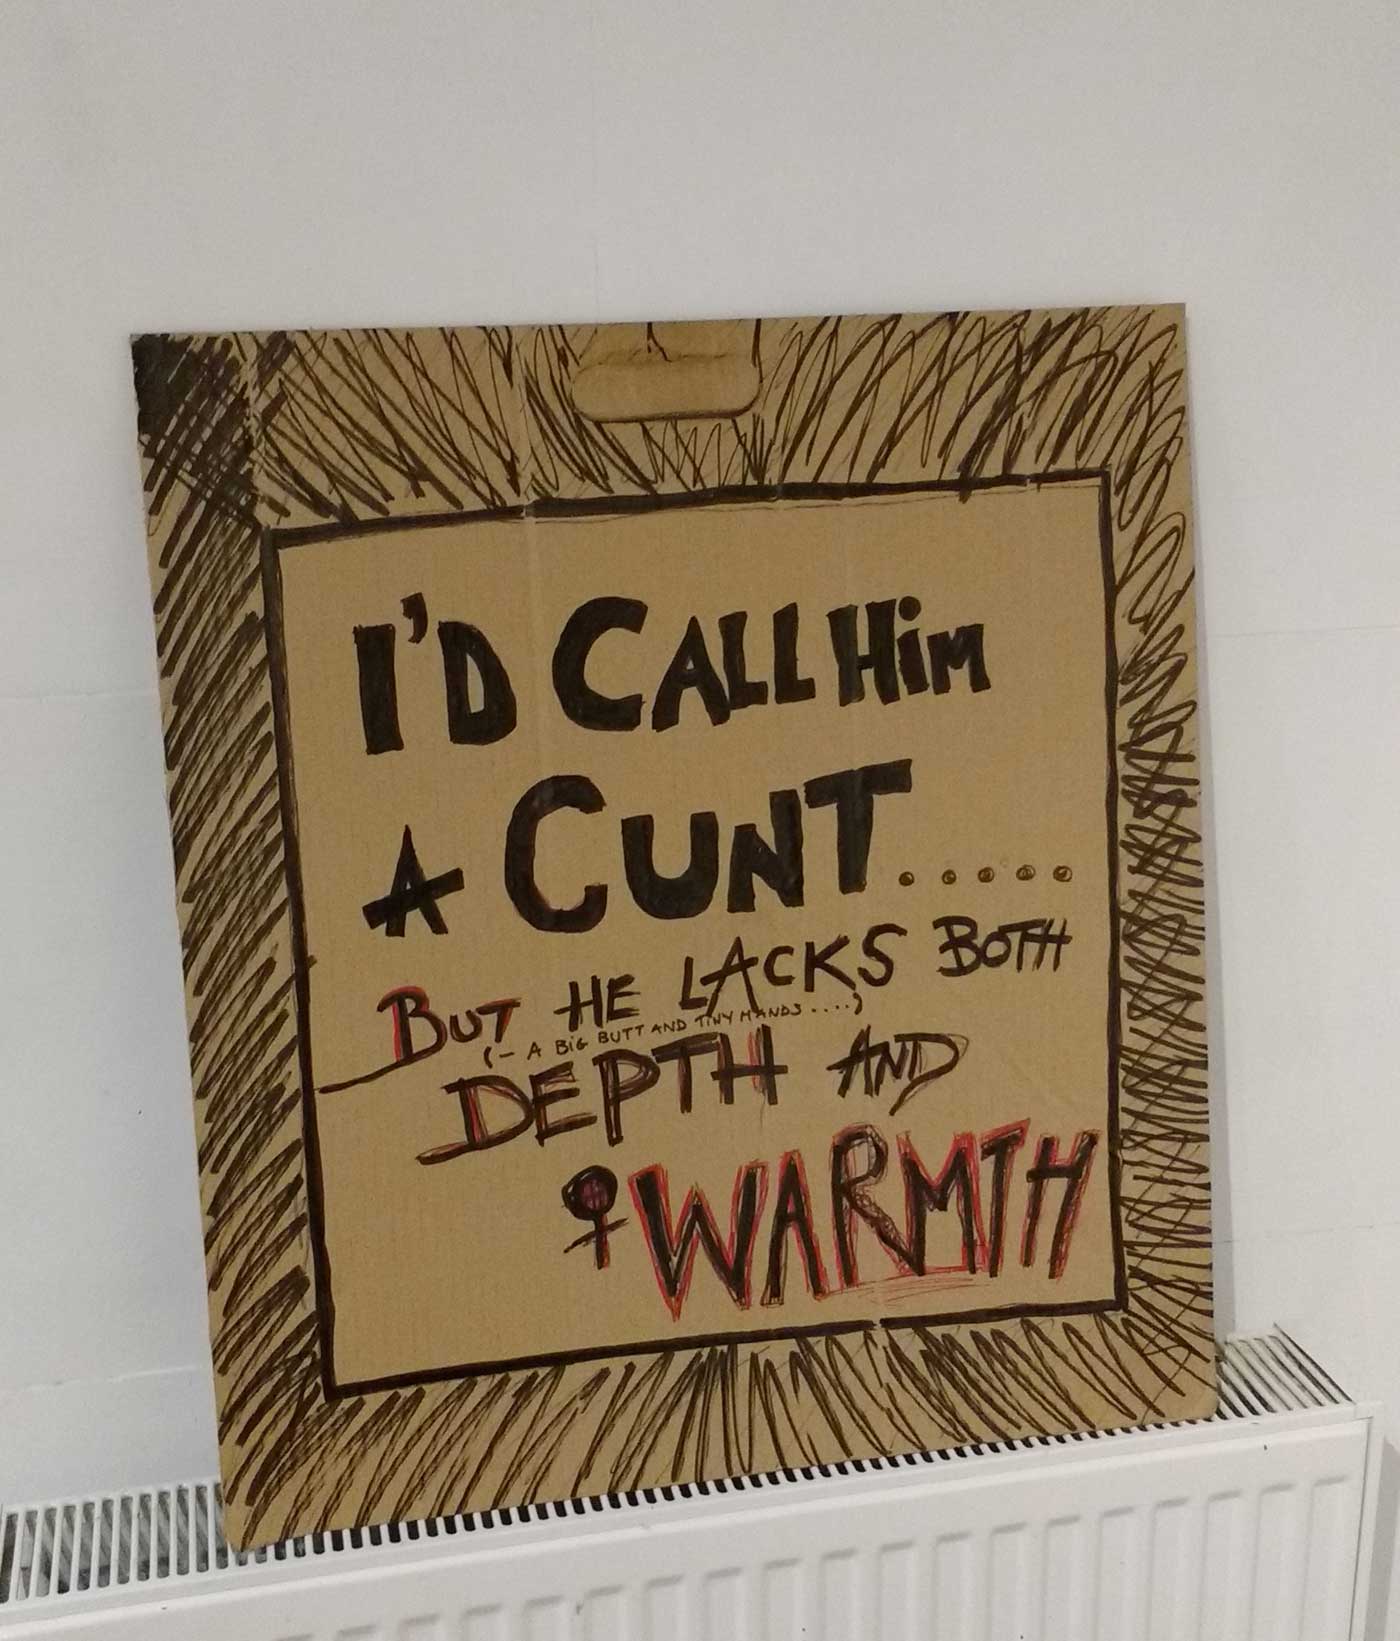 I'D CALL HiM
A CUNT.....
BUT HE LACKS BOTH
(- A BiG BUTT AND TiNY HANDS ....)
DEPTH AND
♀WARMTH